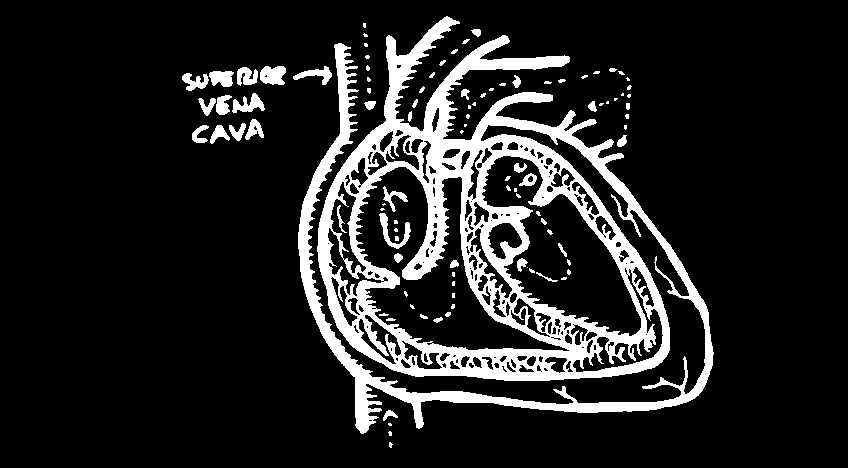 SUPERIOR
VENA
CAVA